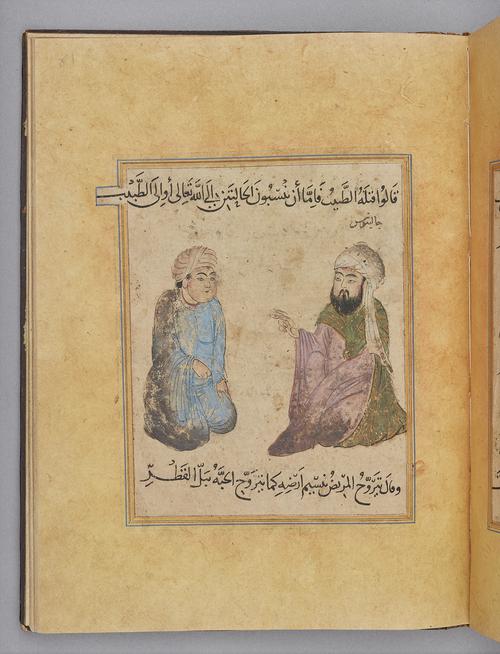 قالوا قتله الطبيب فإما أن تنسبون الحالتين إلى الله تعالى أو إلى الطبيب
جالينوس
وقال يتروح المريض بنسيم أرضه كما تتروح الحبة ببل القطر